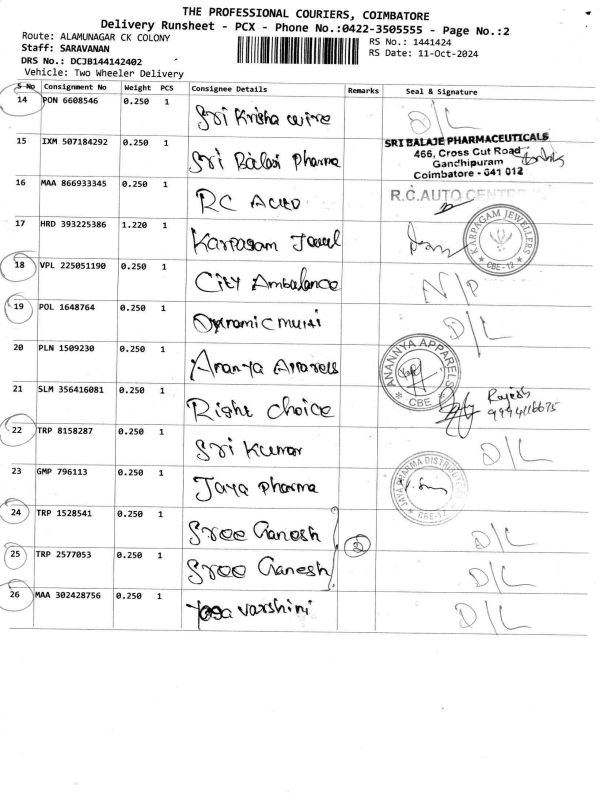 THE PROFESSIONAL COURIERS, COIMBATORE
Delivery Runsheet - PCX - Phone No.:0422-3505555 - Page No.:2
Route: ALAMUNAGAR CK COLONY
RS No.: 1441424
Staff: SARAVANAN
RS Date: 11-Oct-2024
DRS No.: DCJB144142402
Vehicle: Two Wheeler Delivery
S No Consignment No Weight PCS Consignee Details Remarks Seal & Signature
14 PON 6608546 0.250 1 Sri Krisha wire D/L
15 IXM 507184292 0.250 1 Sri Balaji Pharma
SRI BALAJE PHARMACEUTICALS
466, Cross Cut Road
Gandhipuram
Coimbatore - 641 012
16 MAA 866933345 0.250 1 RC Auto
R.C.AUTO CENTRE
17 HRD 393225386 1.220 1 Karpagam Jewel
KARPAGAM JEWELLERS
CBE-12
18 VPL 225051190 0.250 1 City Ambulance N/P
19 POL 1648764 0.250 1 Dynamic multi D/L
20 PLN 1509230 0.250 1 Ananya Apparels
ANANNYA APPARELS
CBE
21 SLM 356416081 0.250 1 Right choice Rajesh
22 TRP 8158287 0.250 1 Sri Kumar D/L
23 GMP 796113 0.250 1 Jaya pharma
JAYA PHARMA DISTRIBUTORS
CBE-12
24 TRP 1528541 0.250 1 Sree Ganesh D/L
2
25 TRP 2577053 0.250 1 Sree Ganesh D/L
26 MAA 302428756 0.250 1 Yoga varshini D/L